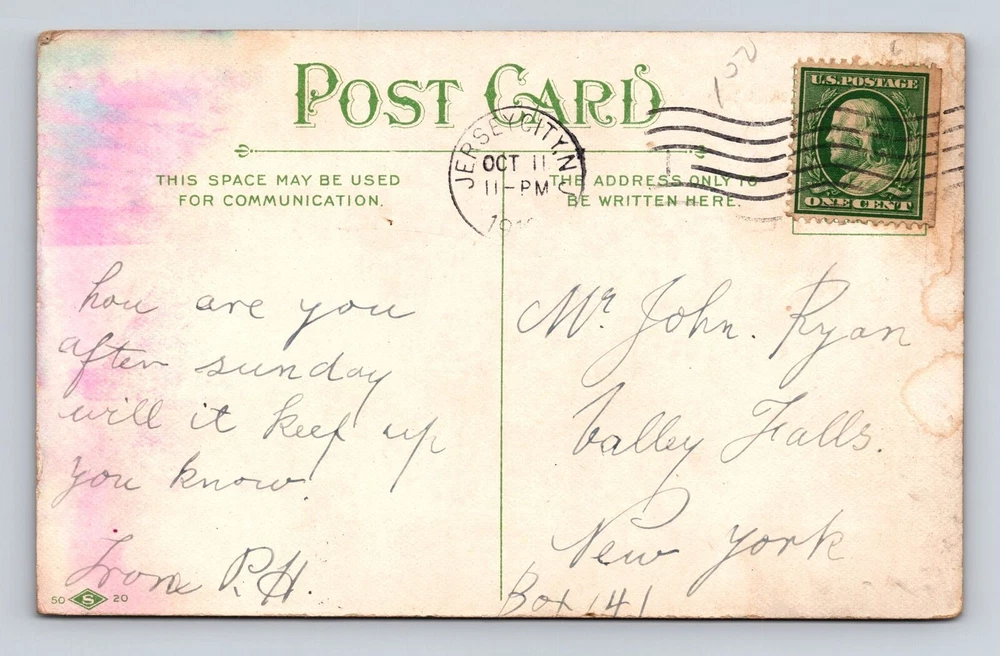 POST CARD
100
U.S. POSTAGE
ONE CENT
JERSEY CITY, N.J.
OCT 11
11-PM
THIS SPACE MAY BE USED
FOR COMMUNICATION.
THE ADDRESS ONLY TO
BE WRITTEN HERE.
how are you
after sunday
will it keep up
you know.
From P.H.
Mr. John. Ryan
Valley Falls.
New York
Box 141
50 S 20